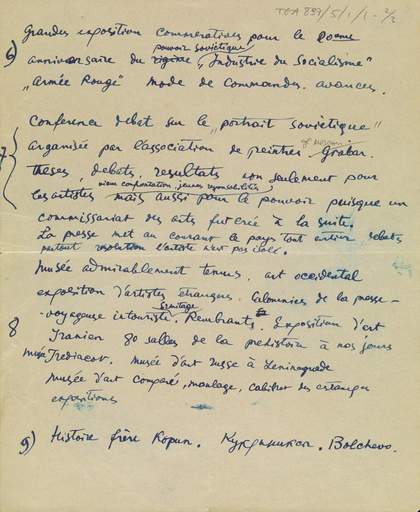 TGA 839/5/1/1 - 2/2
Grandes exposition commeratives pour le
pouvoir soviétique
6) anniversaire du régime, "Industrie du Socialisme"
"Armée Rouge" mode de commandes. avances.
7 Conference debat sur le "portrait soviétique"
organisée par l'association de peintres Grabar.
theses, debats, resultats non seulement pour
les artistes mais aussi pour le pouvoir puisque un
commissariat des arts fut crée à la suite.
La presse met au courant le pays tout entier debats
l'artiste n'est pas
Musée admirablement tenus. art occidental
exposition d'artistes étrangers. Calomnies de la presse -
Ermitage
- voyageuse intouriste. Rembrants. Exposition d'art
8 Iranien 80 salles de la prehistoire à nos jours
musée Trediacov. musée d'art russe à Leninegrade
Musée d'art comparé, moulage, cabinet des estampes
expositions
9) Histoire frère Kopun. Кукриникси. Bolchevo.